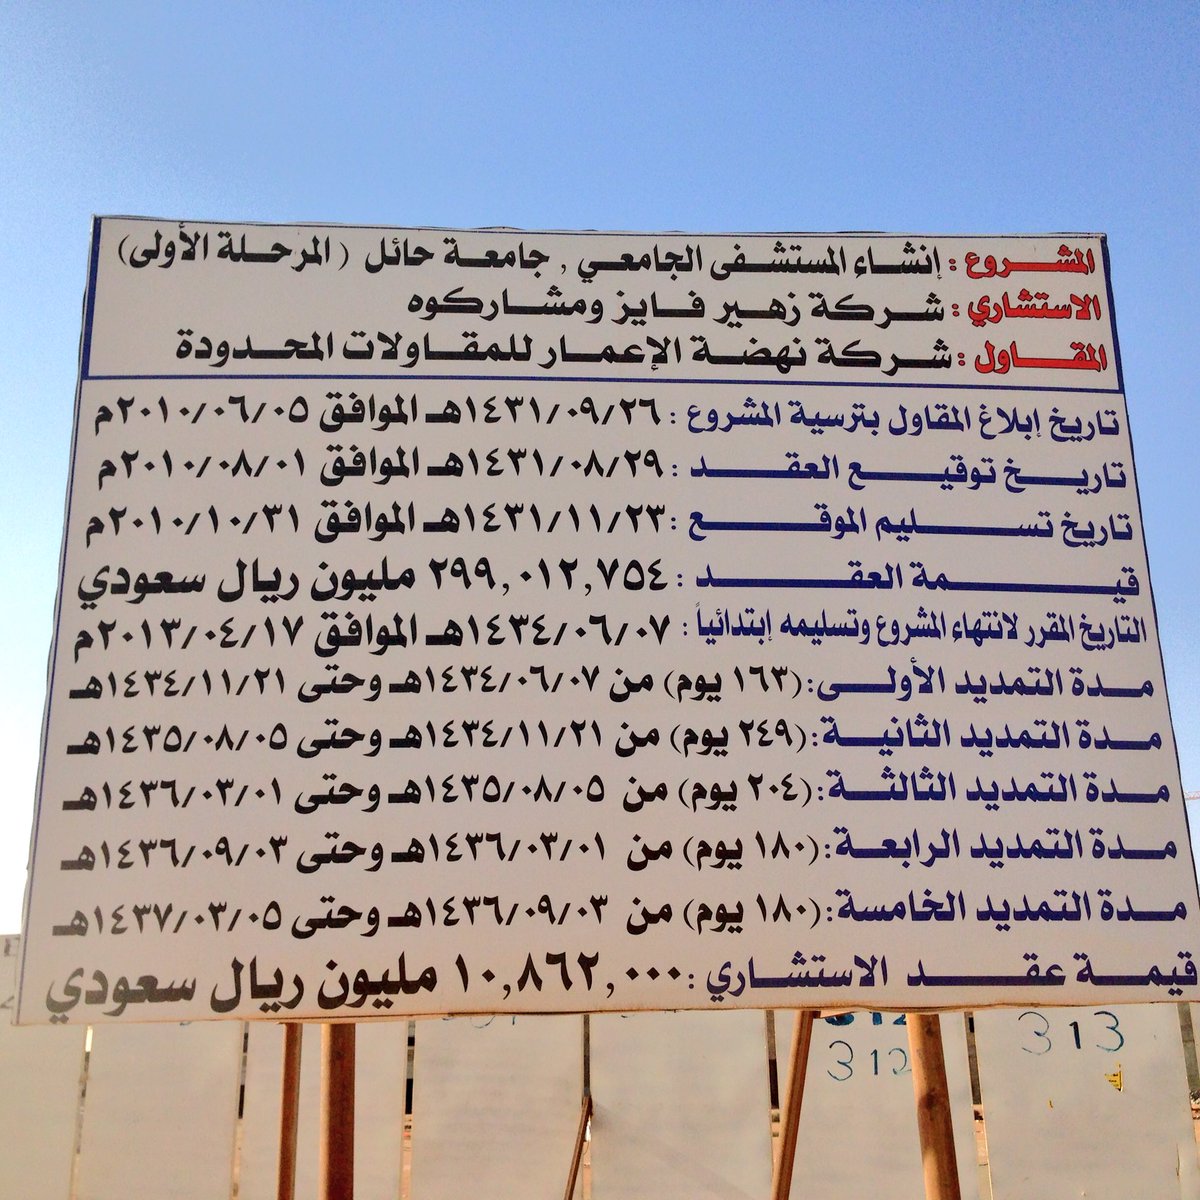 المشروع : إنشاء المستشفى الجامعي , جامعة حائل ( المرحلة الأولى)
الاستشاري : شركة زهير فايز ومشاركوه
المقاول : شركة نهضة الإعمار للمقاولات المحدودة
تاريخ إبلاغ المقاول بترسية المشروع : ١٤٣١/٠٩/٢٦هـ الموافق ٢٠١٠/٠٦/٠٥م
تاريخ توقيع العقد : ١٤٣١/٠٨/٢٩هـ الموافق ٢٠١٠/٠٨/٠١م
تاريخ تسليم الموقع : ١٤٣١/١١/٢٣هـ الموافق ٢٠١٠/١٠/٣١م
قيمة العقد : ٢٩٩,٠١٢,٧٥٤ مليون ريال سعودي
التاريخ المقرر لانتهاء المشروع وتسليمه إبتدائياً : ١٤٣٤/٠٦/٠٧هـ الموافق ٢٠١٣/٠٤/١٧م
مدة التمديد الأولى :(١٦٣ يوم) من ١٤٣٤/٠٦/٠٧هـ وحتى ١٤٣٤/١١/٢١هـ
مدة التمديد الثانية :(٢٤٩ يوم) من ١٤٣٤/١١/٢١هـ وحتى ١٤٣٥/٠٨/٠٥هـ
مدة التمديد الثالثة :(٢٠٤ يوم) من ١٤٣٥/٠٨/٠٥هـ وحتى ١٤٣٦/٠٣/٠١هـ
مدة التمديد الرابعة :(١٨٠ يوم) من ١٤٣٦/٠٣/٠١هـ وحتى ١٤٣٦/٠٩/٠٣هـ
مدة التمديد الخامسة :(١٨٠ يوم) من ١٤٣٦/٠٩/٠٣هـ وحتى ١٤٣٧/٠٣/٠٥هـ
قيمة عقد الاستشاري : ١٠,٨٦٢,٠٠٠ مليون ريال سعودي
312
313